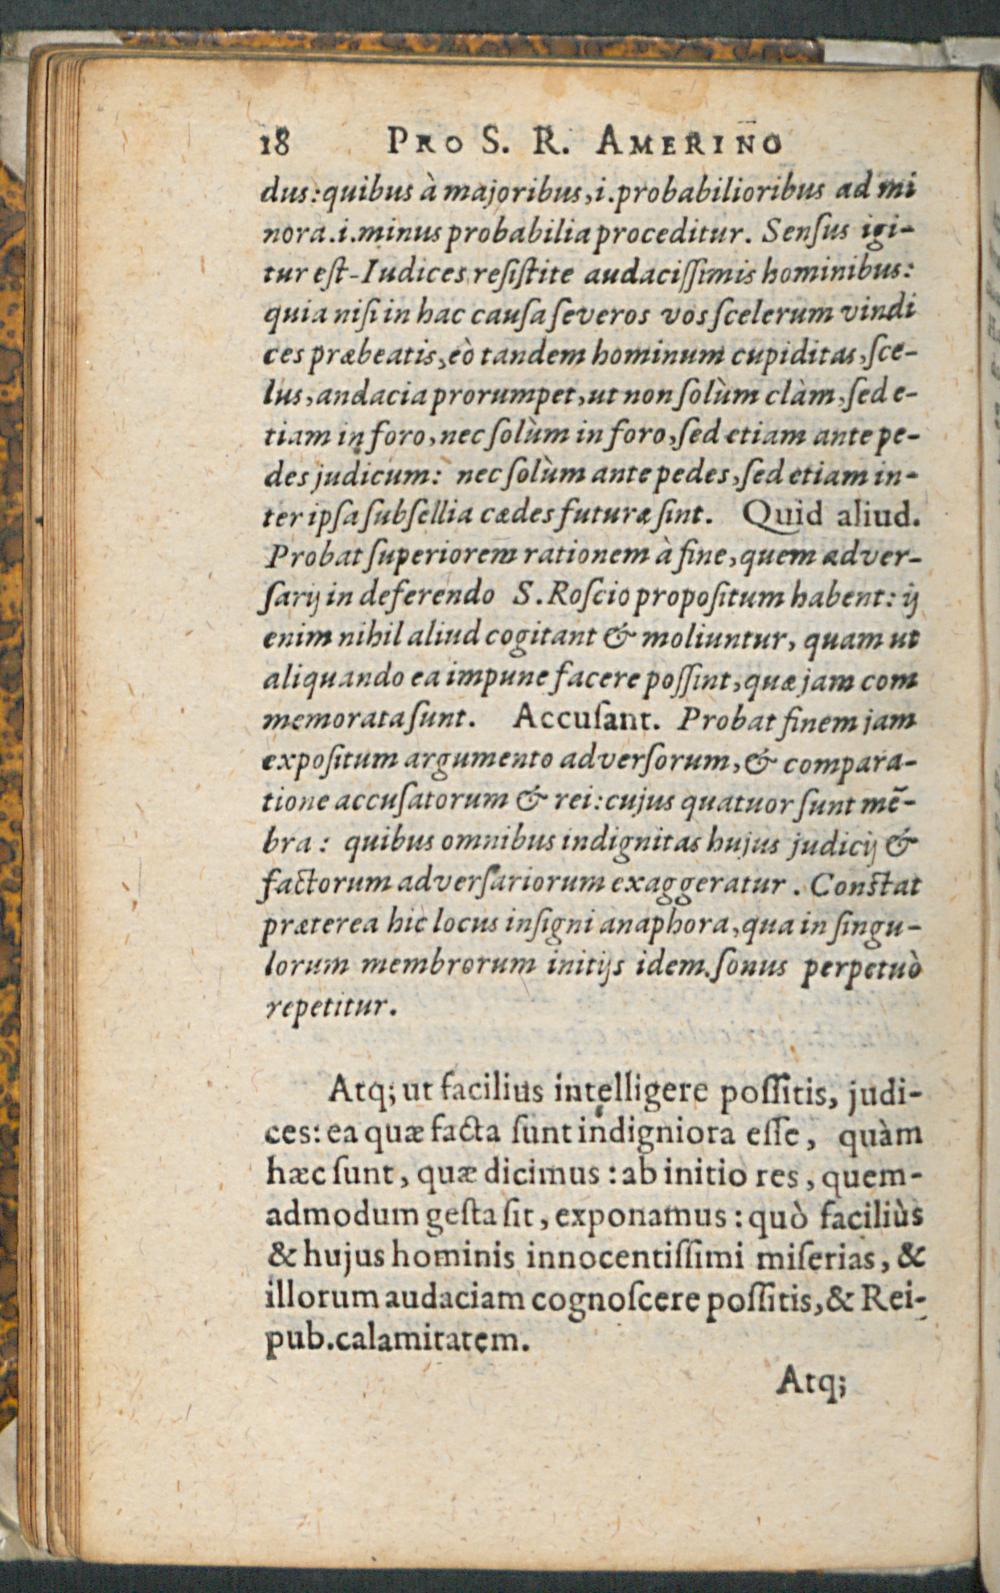 18 PRO S. R. AMERINO
dus: quibus à majoribus, i. probabilioribus ad mi
nora. i. minus probabilia proceditur. Senſus igi-
tur eſt-Iudices reſiſtite audaciſſimis hominibus:
quia niſi in hac cauſa ſeveros vos ſcelerum vindi
ces præbeatis, eò tandem hominum cupiditas, ſce-
lus, andacia prorumpet, ut non ſolùm clàm, ſed e-
tiam in foro, nec ſolùm in foro, ſed etiam ante pe-
des judicum: nec ſolùm ante pedes, ſed etiam in-
ter ipſa ſubſellia cædes futuræ ſint. Quid aliud.
Probat ſuperiorem rationem à fine, quem adver-
ſarij in deferendo S. Roſcio propoſitum habent: ij
enim nihil aliud cogitant & moliuntur, quam ut
aliquando ea impune facere poſſint, quæ jam com
memorata ſunt. Accuſant. Probat finem jam
expoſitum argumento adverſorum, & compara-
tione accuſatorum & rei: cujus quatuor ſunt mē-
bra: quibus omnibus indignitas hujus judicij &
factorum adverſariorum exaggeratur. Conſtat
præterea hic locus inſigni anaphora, qua in ſingu-
lorum membrorum initijs idem. ſonus perpetuò
repetitur.
Atq; ut facilius intelligere poſſitis, judi-
ces: ea quæ facta ſunt indigniora eſſe, quàm
hæc ſunt, quæ dicimus: ab initio res, quem-
admodum geſta ſit, exponamus: quò faciliùs
& hujus hominis innocentiſſimi miſerias, &
illorum audaciam cognoſcere poſſitis, & Rei-
pub. calamitatem.
Atq;